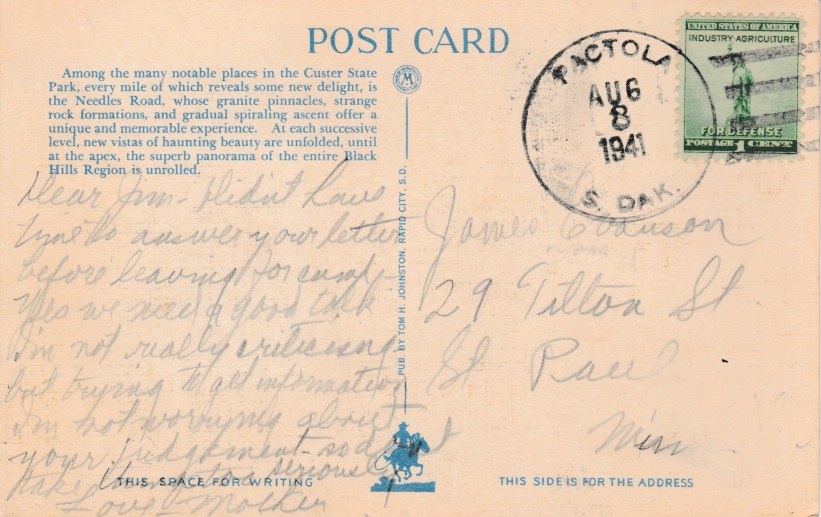 POST CARD
Among the many notable places in the Custer State
Park, every mile of which reveals some new delight, is
the Needles Road, whose granite pinnacles, strange
rock formations, and gradual spiraling ascent offer a
unique and memorable experience. At each successive
level, new vistas of haunting beauty are unfolded, until
at the apex, the superb panorama of the entire Black
Hills Region is unrolled.
PACTOLA
AUG
8
1941
S. DAK.
UNITED STATES OF AMERICA
INDUSTRY AGRICULTURE
FOR DEFENSE
POSTAGE 1 CENT
Dear Jim - Didn't have
time to answer your letter
before leaving for camp -
Yes we need a good talk
I'm not really criticising
but trying to get information
I'm not worrying about
your judgement - so don't
take them too seriously
Love - Mother
PUB. BY TOM H. JOHNSTON, RAPID CITY, S.D.
James
29 Tilton St.
St Paul
Minn
THIS SPACE FOR WRITING
THIS SIDE IS FOR THE ADDRESS